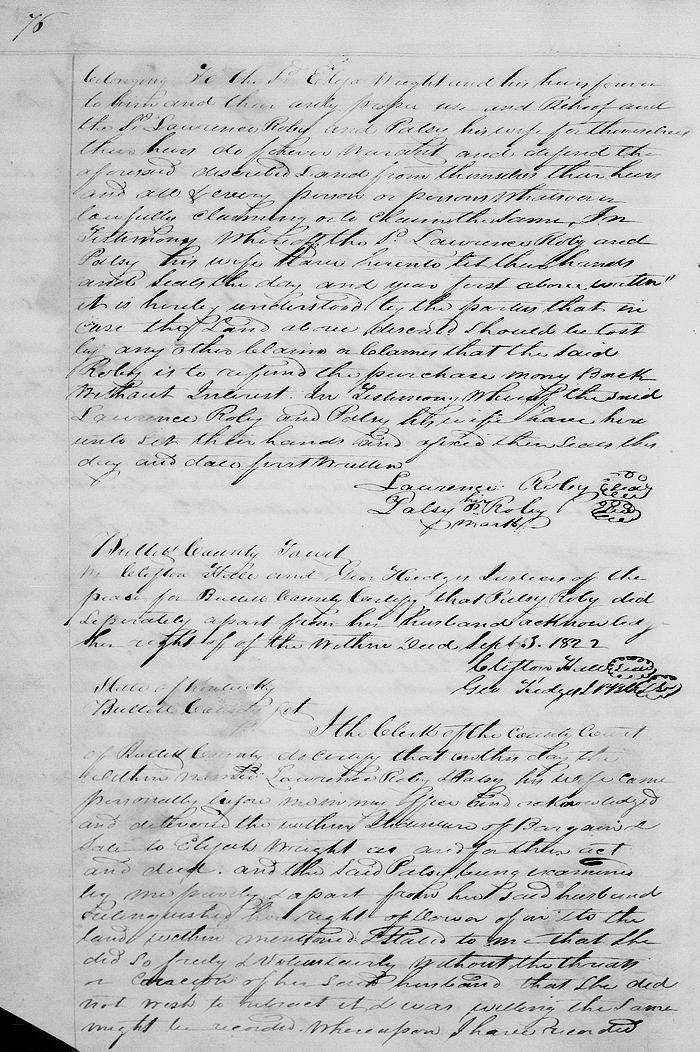 76
belonging To the Sd Elija Wright and his heirs forever
to him and their only proper use and Behoof and
the Sd Lawrence Roby and Palsy his wife for themselves
their heirs do forever Warant and defend the
aforesaid discribed Land from themselves their heirs
and all & every person or persons Whatsoever
lawfully claiming or to claim the same, In
Testimony Whereof the Sd Lawrence Roby and
Patsy his wife have hereunto set their hands
and Seals the day and year first above written"
it is hereby understood by the parties that in
case the Land above discred should be lost
by any other Claim or Claimes that the said
Roby is to refund the purchase mony Back
Without Interest. In Testimony Whereof the said
Lawrence Roby and Patsy his wife have here
unto Set their hands and afixed their Seals this
day and date first Written
Lawrence Roby Seal
Patsy her P. Roby Seal
X mark
Bullitt County Towit
We Clifton Hall and Geor Hedges Justices of the
peace for Bullitt County Certify that Patsy Roby did
Seperately apart from her husband acknowledge
her right of of the Within Deed Sept 3. 1822
Clifton Hall Seal
Geo Hedges Seal
State of Kentucky
Bullitt County Sct
I the Clerk of the County Court
of Bullitt County do certify that on this day the
Within named Lawrence Roby & Patsy his wife came
personally before me in my office and acknowledged
and delivered the within Indenture of Bargain &
Sale to Elijah Wright as and for their act
and deed. and the said Patsy being examined
by me privily & apart from her said husband
Relinquished her right of Dower of in & to the
land within mentioned & Stated to me that She
did so freely & Voluntarily Without the threats
or coercion of her said husband that She did
not wish to retract it & was willing the Same
might be recorded. Whereupon I have recorded